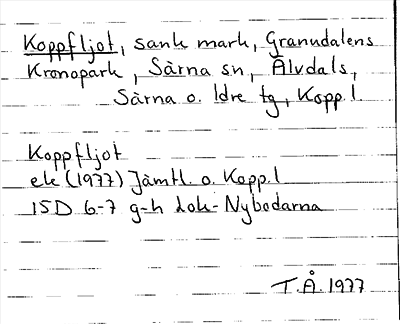 Koppfljot, sank mark, Granudalens
Kronopark, Särna sn, Älvdals,
Särna o. Idre tg, Kopp.l.
Koppfljot
ek (1977) Jämtl. o. Kopp.l
15D 6-7 g-h Lok-Nybodarna
T.Å. 1977